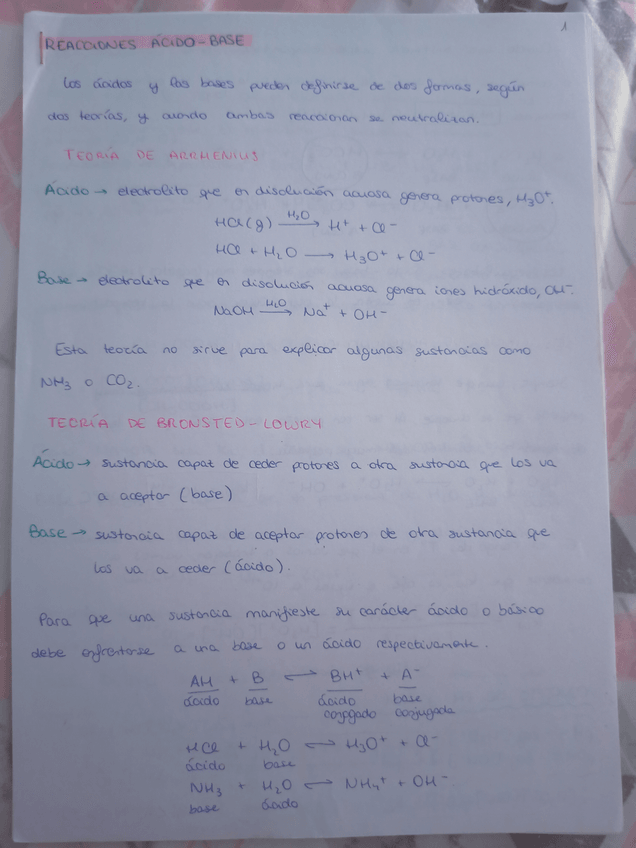 1
REACCIONES ÁCIDO-BASE
Los ácidos y las bases pueden definirse de dos formas, según
dos teorías, y cuando ambas reaccionan se neutralizan.
TEORÍA DE ARRHENIUS
Ácido → electrolito que en disolución acuosa genera protones, H₃O⁺.
HCl(g) —H₂O→ H⁺ + Cl⁻
HCl + H₂O → H₃O⁺ + Cl⁻
Base → electrolito que en disolución acuosa genera iones hidróxido, OH⁻.
NaOH —H₂O→ Na⁺ + OH⁻
Esta teoría no sirve para explicar algunas sustancias como
NH₃ o CO₂.
TEORÍA DE BRONSTED-LOWRY
Ácido → sustancia capaz de ceder protones a otra sustancia que los va
a aceptar (base)
Base → sustancia capaz de aceptar protones de otra sustancia que
los va a ceder (ácido).
Para que una sustancia manifieste su carácter ácido o básico
debe enfrentarse a una base o un ácido respectivamente.
AH + B ⇌ BH⁺ + A⁻
ácido base ácido base
conjugado conjugada
HCl + H₂O ⇌ H₃O⁺ + Cl⁻
ácido base
NH₃ + H₂O ⇌ NH₄⁺ + OH⁻
base ácido